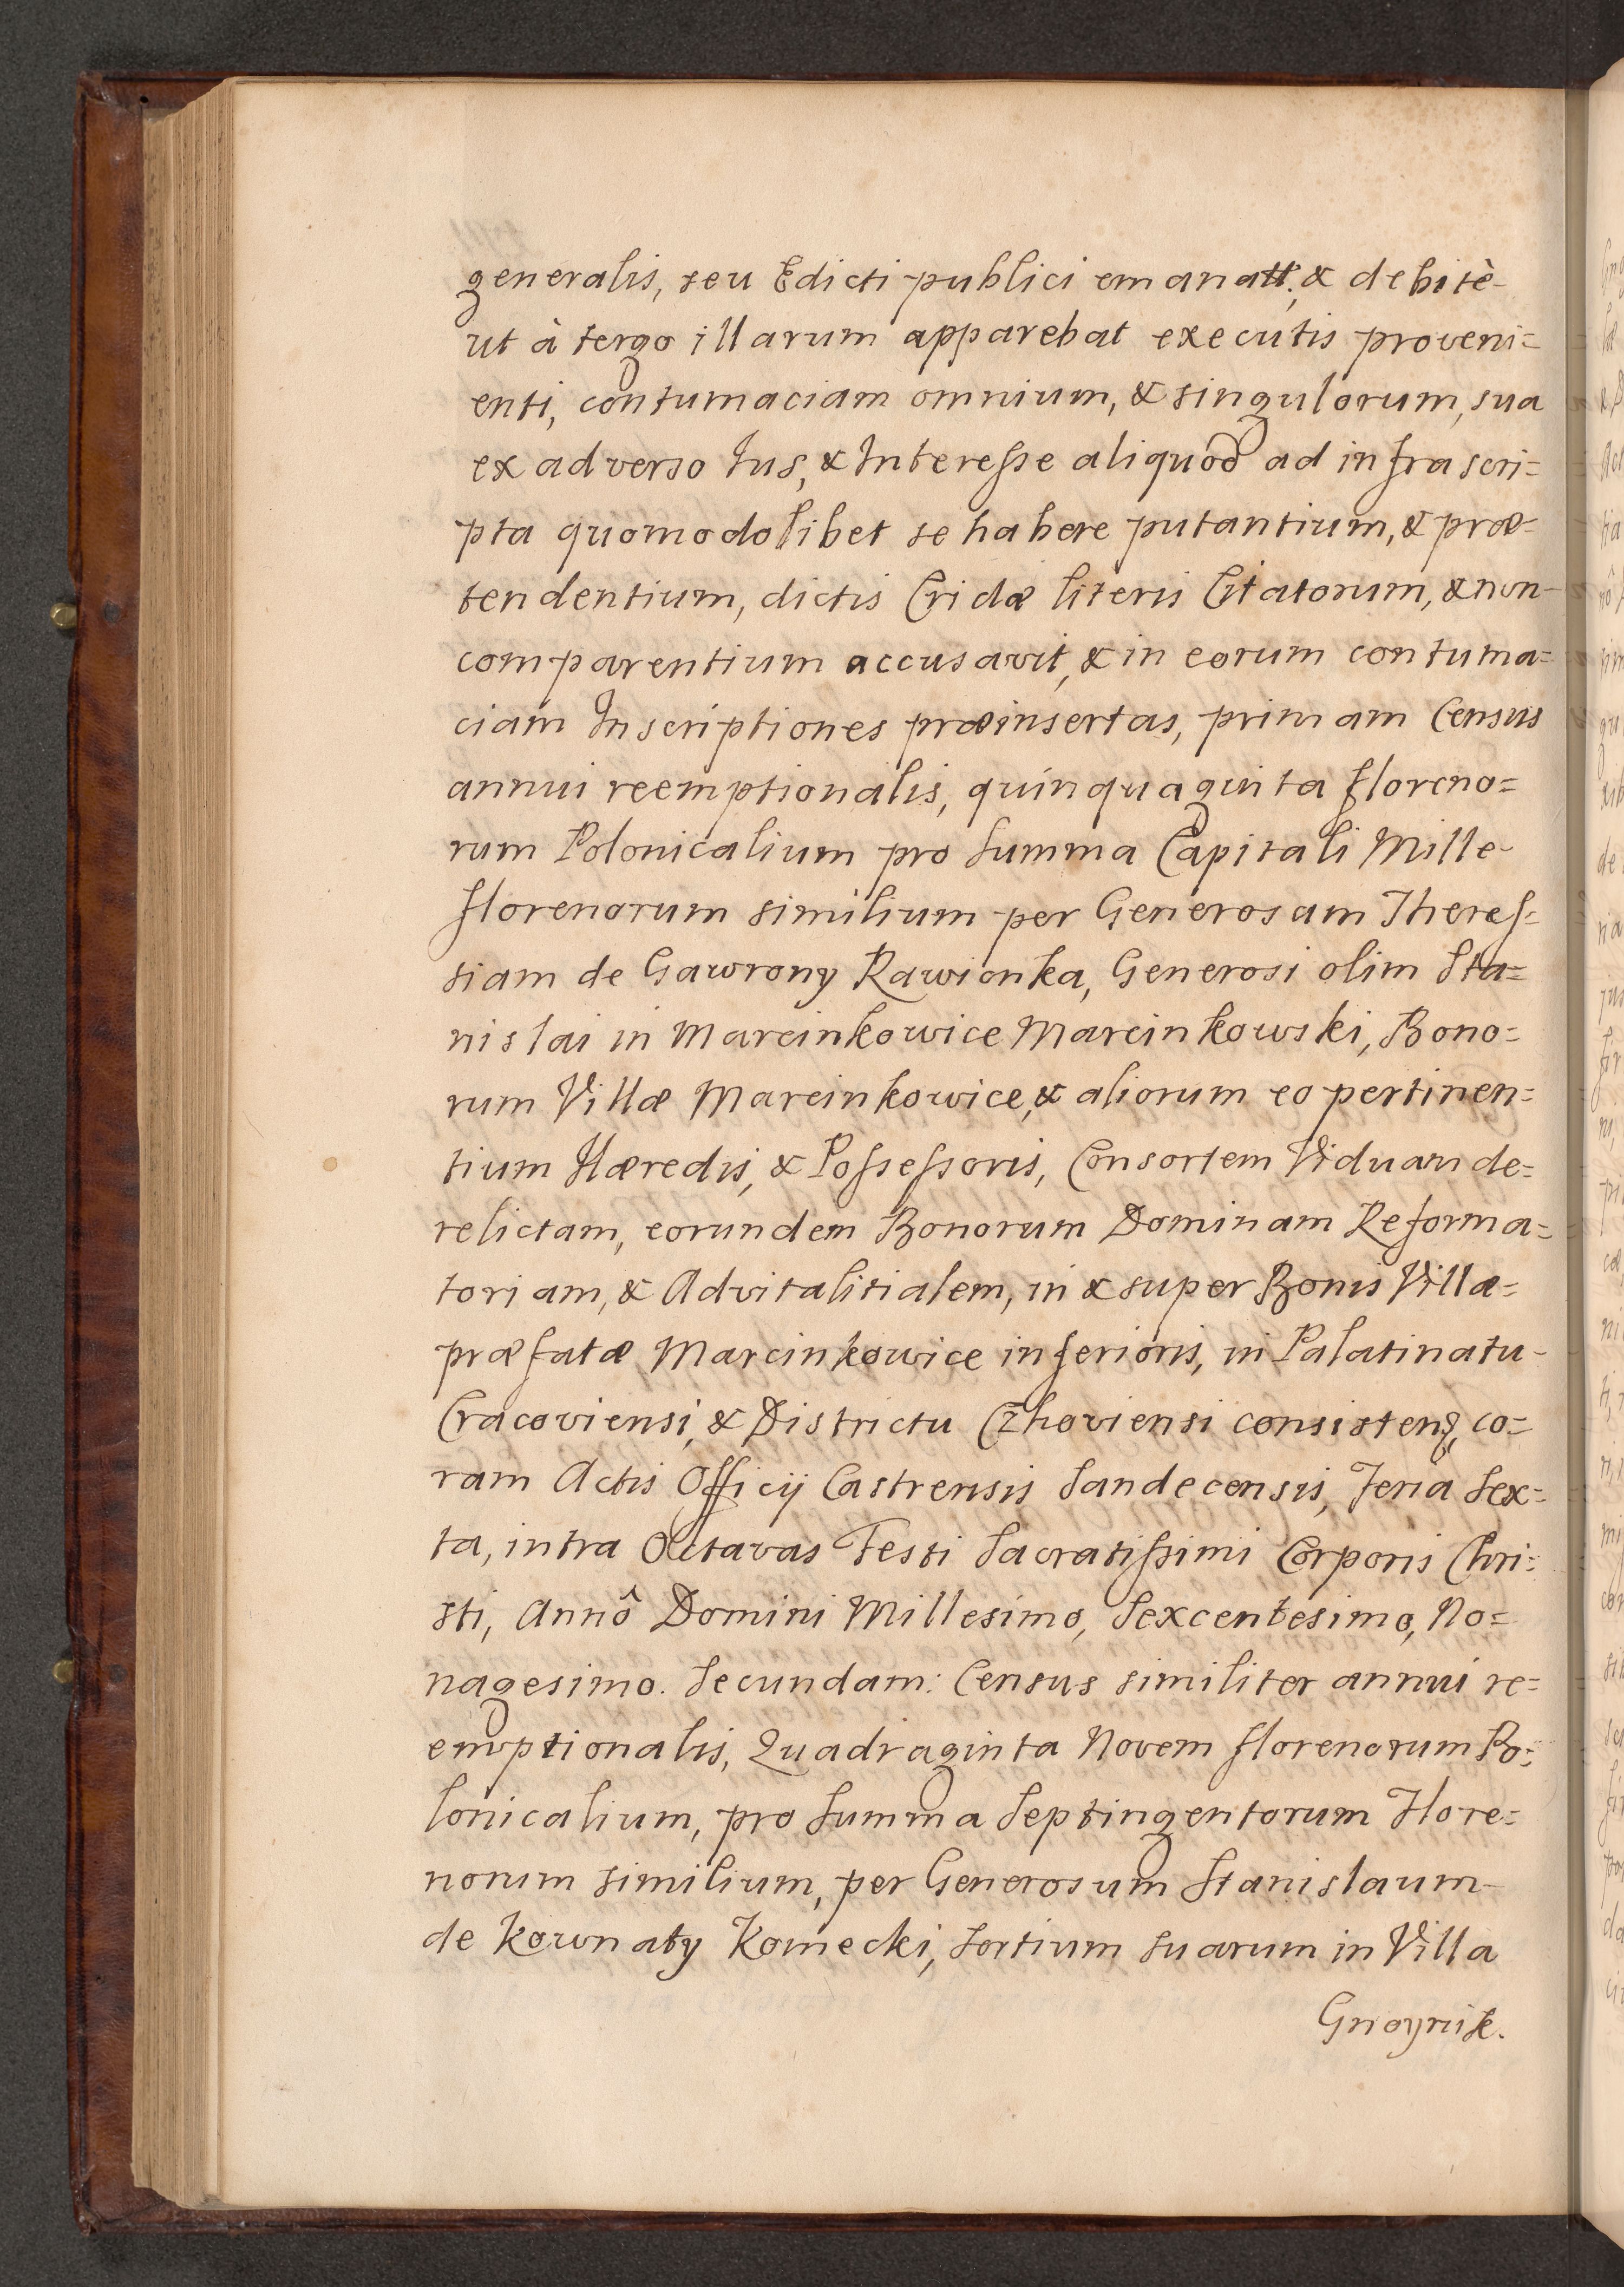 generalis, seu Edicti publici emanatt: & debitè
ut à tergo illarum apparebat executis proveni=
enti, contumaciam omnium, & singulorum, sua
ex adverso Jus, & Interesse aliquod ad infra scri=
pta quomodolibet se habere putantium, & præ
tendentium, dictis Cridæ literis Citatorum, & non
comparentium accusavit, & in eorum contuma=
ciam Inscriptiones præinsertas, primam Census
annui reemptionalis, quinquaginta floreno=
rum Polonicalium pro Summa Capitali Mille
florenorum similium per Generosam Theres=
siam de Gawrony Rawionka, Generosi olim Sta=
nislai in Marcinkowice Marcinkowski, Bono=
rum Villæ Marcinkowice, & aliorum eo pertinen=
tium Hæredis, & Possessoris, Consortem Viduam de=
relictam, eorundem Bonorum Dominam Reforma=
toriam, & Advitalitialem, in & super Bonis Villæ
præfatæ Marcinkowice inferioris, in Palatinatu
Cracoviensi, & Districtu Czhoviensi consisten, co=
ram Actis Officij Castrensis Sandecensis, Feria Sex=
ta, intra Octavas Festi Sacratissimi Corporis Chri=
sti, Annô Domini Millesimo, Sexcentesimo, No=
nagesimo. Secundam: Census similiter annui re=
emptionalis, Quadraginta Novem florenorum Po=
lonicalium, pro Summa Septingentorum Flore=
norum similium, per Generosum Stanislaum
de Kownaty Komecki, Sortium Suarum in Villa